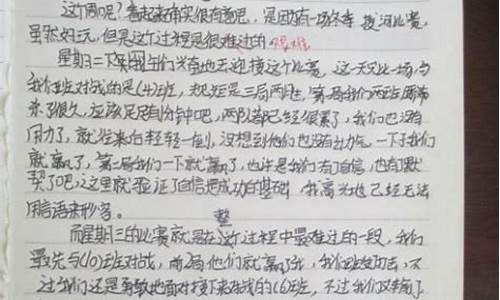 这个周呢?看起来确实很有意思,是因为有一场冬季拔河比赛,
虽然好玩,但是这个过程是很难过的 艰难
星期二下午同学们兴奋地去迎接这个比赛,这一天第一场与
我们班对战的是(4)班,规矩是三局两胜,第一局我们两班
来了很久,应该足足有1分钟吧,两队都已经很累了,我们也没有
力了,就 轻轻一 ,没想到他们也没有力气,一下子我们
就赢了,第二局我们一下就赢了,也许是我们有了自信,也有默
契了吧,这里就验证了自信是成功的基础,我高兴地已经无法
用言语来形容。 整
而星期三的比赛就是在这个过程中最难过的一段,我们
最先与(10)班对战,前2局他们就赢了我,我们 ,不
过我们还是勇敢地面对接下来对战的(6)班,不过我们又输了